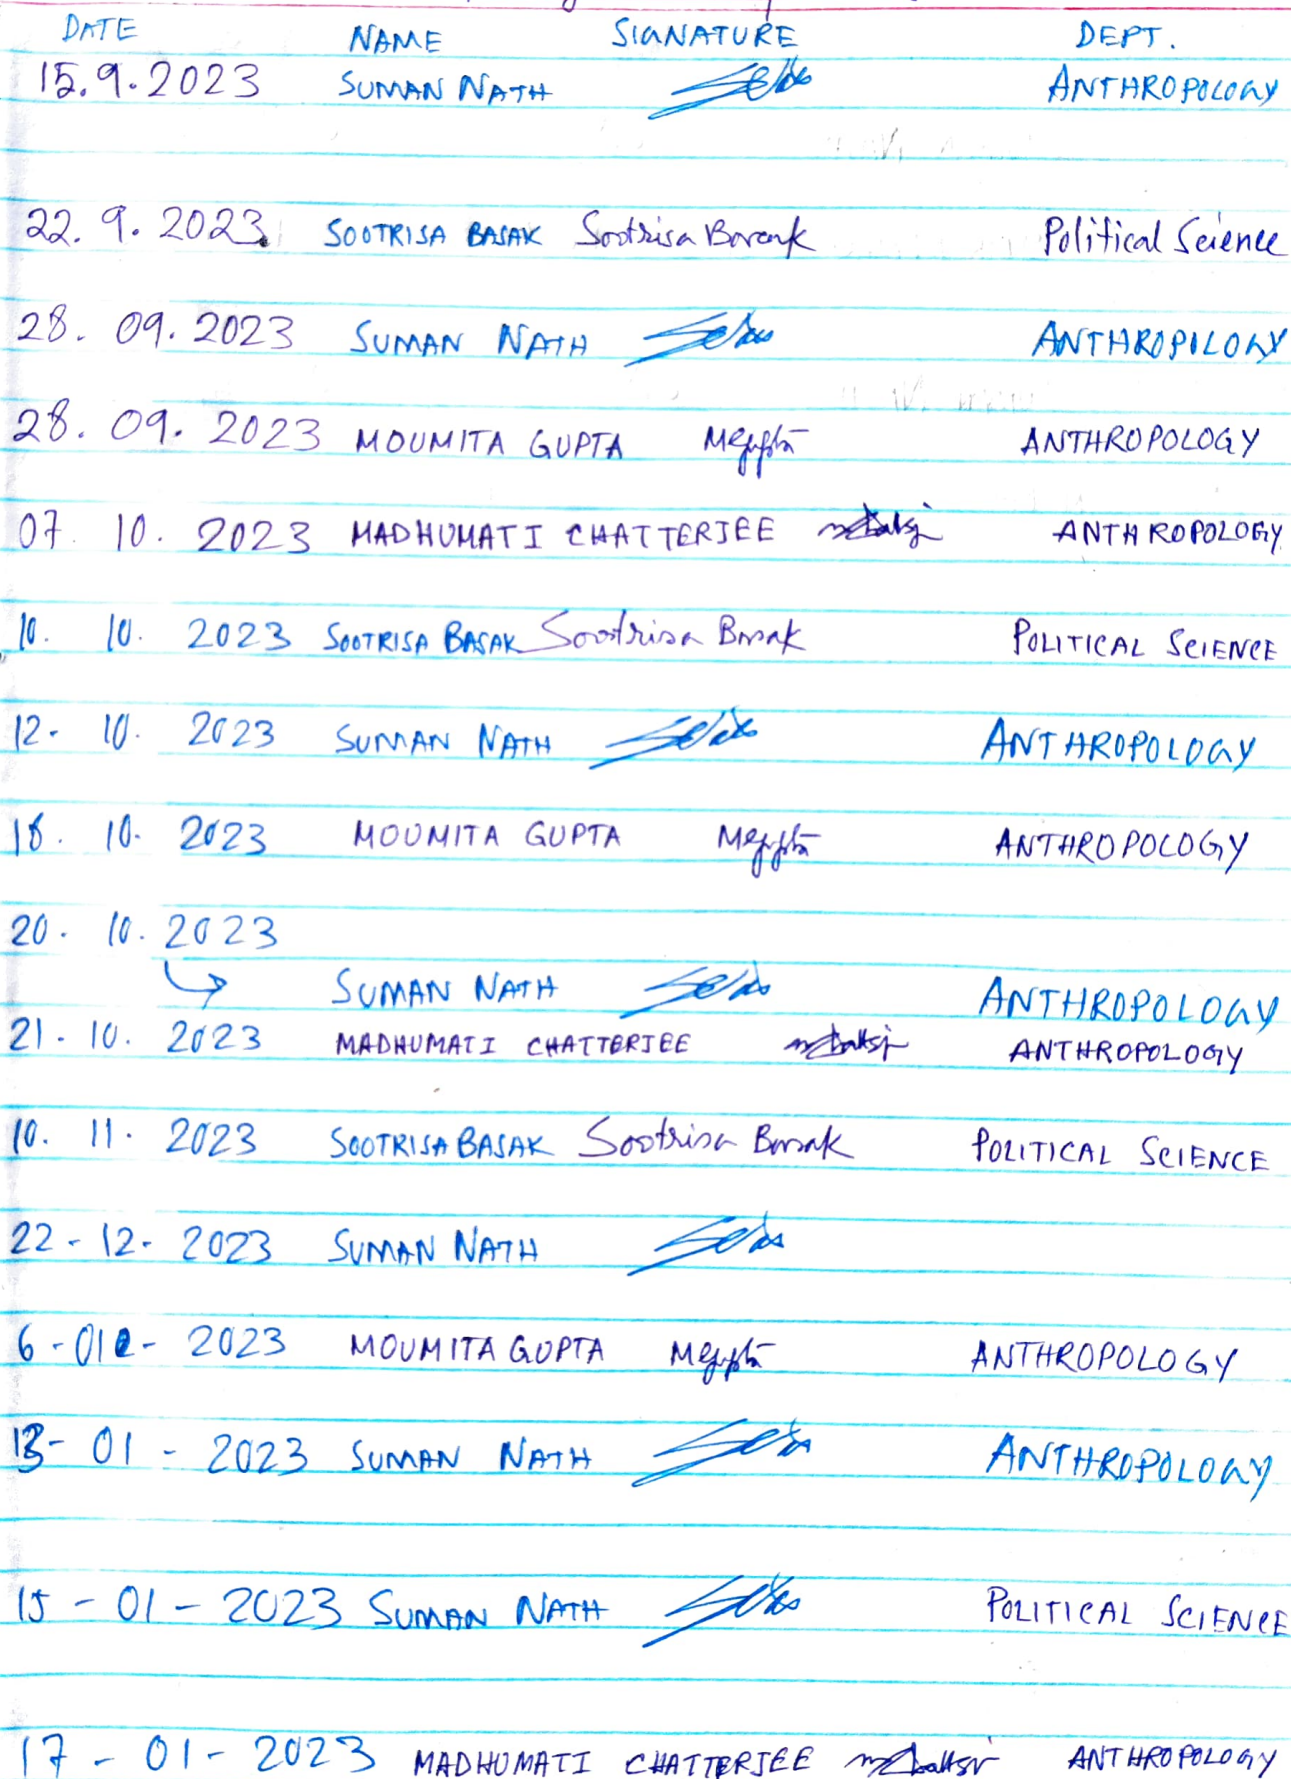 DATE NAME SIGNATURE DEPT.
15.9.2023 SUMAN NATH ANTHROPOLOGY
22.9.2023 SOOTRISA BASAK Sootrisa Basak Political Science
28.09.2023 SUMAN NATH ANTHROPILOGY
28.09.2023 MOUMITA GUPTA MGupta ANTHROPOLOGY
07 10.2023 MADHUMATI CHATTERJEE ANTHROPOLOGY
10. 10. 2023 SOOTRISA BASAK Sootrisa Basak POLITICAL SCIENCE
12- 10. 2023 SUMAN NATH ANTHROPOLOGY
18. 10. 2023 MOUMITA GUPTA MGupta ANTHROPOLOGY
20. 10. 2023
SUMAN NATH ANTHROPOLOGY
21-10. 2023 MADHUMATI CHATTERJEE ANTHROPOLOGY
10. 11. 2023 SOOTRISA BASAK Sootrisa Basak POLITICAL SCIENCE
22-12-2023 SUMAN NATH
6-01-2023 MOUMITA GUPTA MGupta ANTHROPOLOGY
13-01-2023 SUMAN NATH ANTHROPOLOGY
15-01-2023 SUMAN NATH POLITICAL SCIENCE
17-01-2023 MADHUMATI CHATTERJEE ANTHROPOLOGY